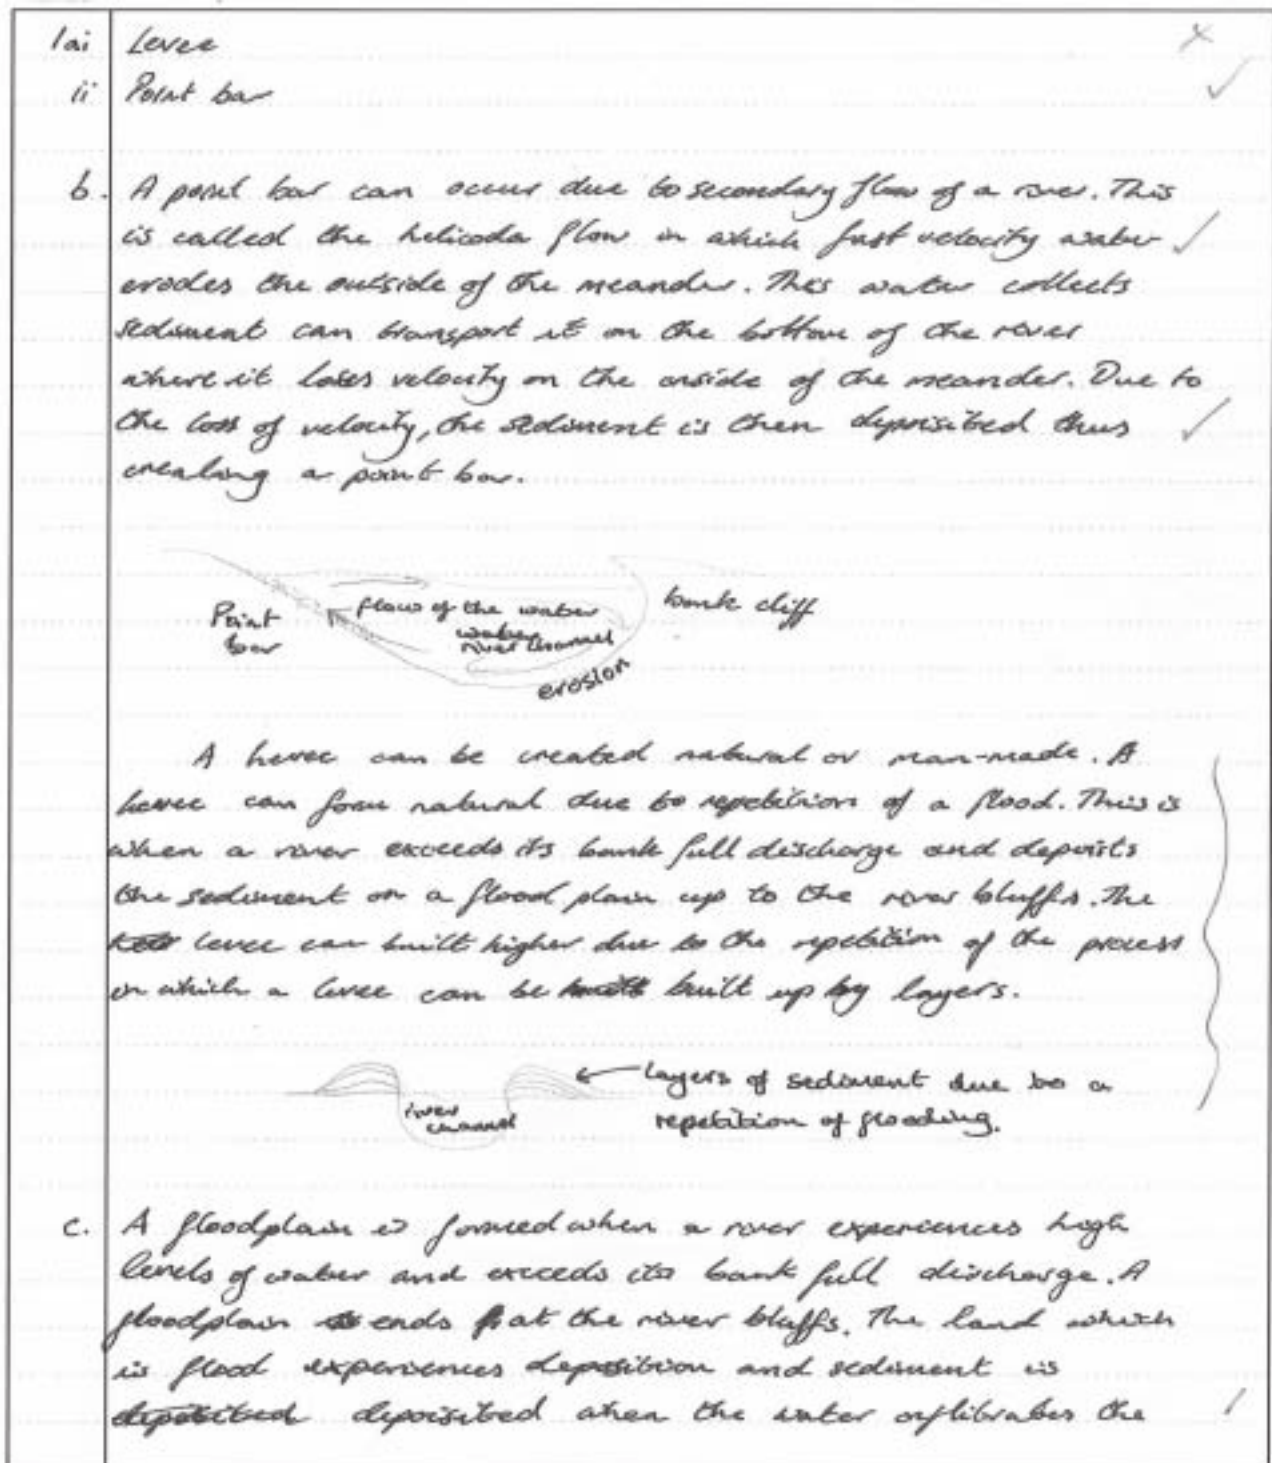 1ai Levee
ii Point bar
b. A point bar can occur due to secondary flow of a river. This
is called the helicoda flow in which fast velocity water
erodes the outside of the meander. This water collects
sediment can transport it on the bottom of the river
where it loses velocity on the inside of the meander. Due to
the loss of velocity, the sediment is then deposited thus
creating a point bar.
Point
bar
flow of the water
river channel
erosion
bank cliff
A levee can be created natural or man-made. A
levee can form natural due to repetition of a flood. This is
when a river exceeds its bank full discharge and deposits
the sediment on a flood plain up to the river bluffs. The
levee can built higher due to the repetition of the process
in which a levee can be built up by layers.
river
channel
layers of sediment due to a
repetition of flooding.
c. A floodplain is formed when a river experiences high
levels of water and exceeds its bank full discharge. A
floodplain ends at the river bluffs. The land which
is flood experiences deposition and sediment is
deposited depoisited when the water the